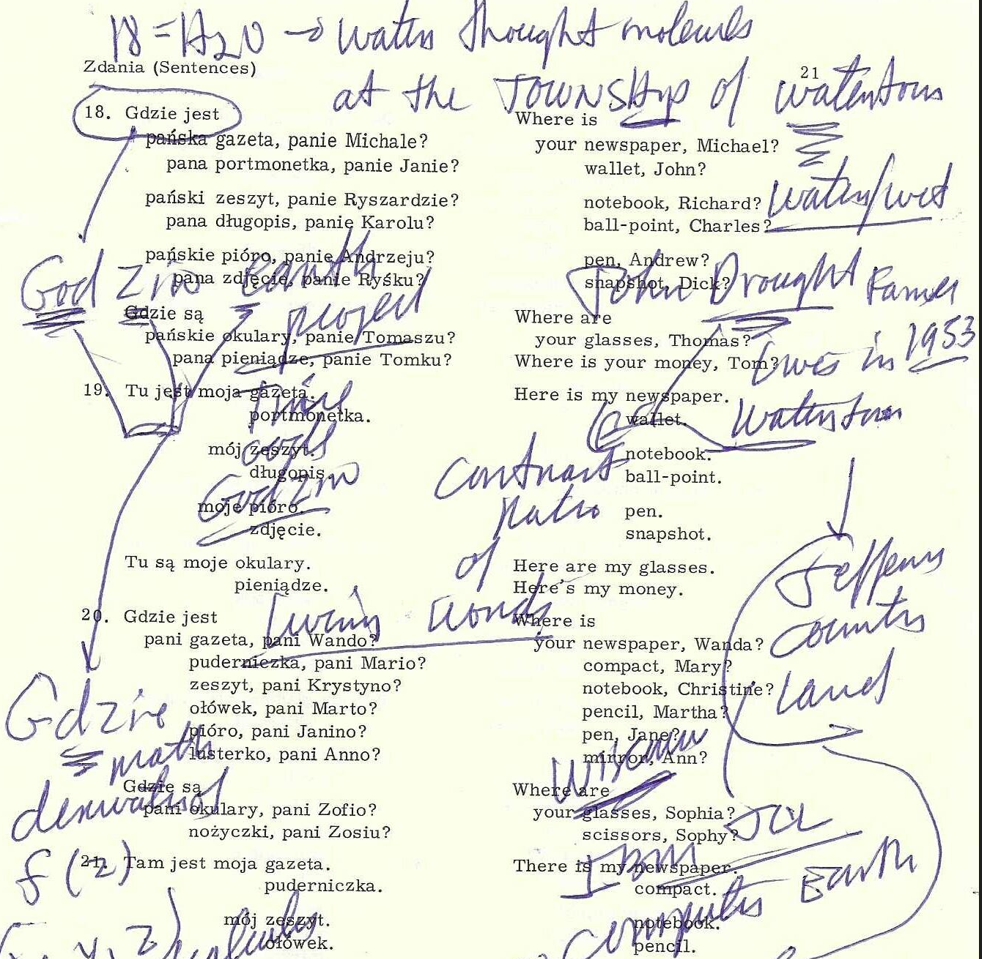 18 = H2O → water thought molecules
Zdania (Sentences)
21
at the TOWNSHIP of watertown
18. Gdzie jest
Where is
pańska gazeta, panie Michale?
your newspaper, Michael?
pana portmonetka, panie Janie?
wallet, John?
pański zeszyt, panie Ryszardzie?
notebook, Richard?
water/wet
pana długopis, panie Karolu?
ball-point, Charles?
pańskie pióro, panie Andrzeju?
pen, Andrew?
pana zdjęcie, panie Ryśku?
snapshot, Dick?
God
earth
project
John Drought Farmer
Gdzie są
Where are
pańskie okulary, panie Tomaszu?
your glasses, Thomas?
pana pieniądze, panie Tomku?
Where is your money, Tom?
lives in 1953
19. Tu jest moja gazeta.
Here is my newspaper.
portmonetka.
wallet.
Watertown
mój zeszyt.
notebook.
długopis.
ball-point.
moje pióro.
pen.
zdjęcie.
snapshot.
contract
of
Tu są moje okulary.
Here are my glasses.
pieniądze.
Here's my money.
Jefferson
county
land
20. Gdzie jest
Where is
words
pani gazeta, pani Wando?
your newspaper, Wanda?
puderniczka, pani Mario?
compact, Mary?
zeszyt, pani Krystyno?
notebook, Christine?
ołówek, pani Marto?
pencil, Martha?
pióro, pani Janino?
pen, Jane?
lusterko, pani Anno?
mirror, Ann?
Gdzie
math
Gdzie są
Where are
pani okulary, pani Zofio?
your glasses, Sophia?
nożyczki, pani Zosiu?
scissors, Sophy?
f(z)
21. Tam jest moja gazeta.
There is my newspaper.
puderniczka.
compact.
IBM
computer Earth
mój zeszyt.
notebook.
ołówek.
pencil.
calculus